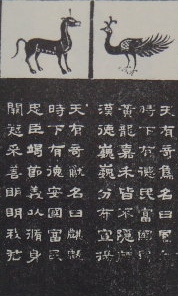 天有奇鳥名曰鳳
時下有德民富國
黃龍嘉禾皆不隱
漢德巍巍分布宣揚
天有奇獸名曰麒麟
時下有德安國富民
忠臣竭節義以循身
闕愆采善明明我